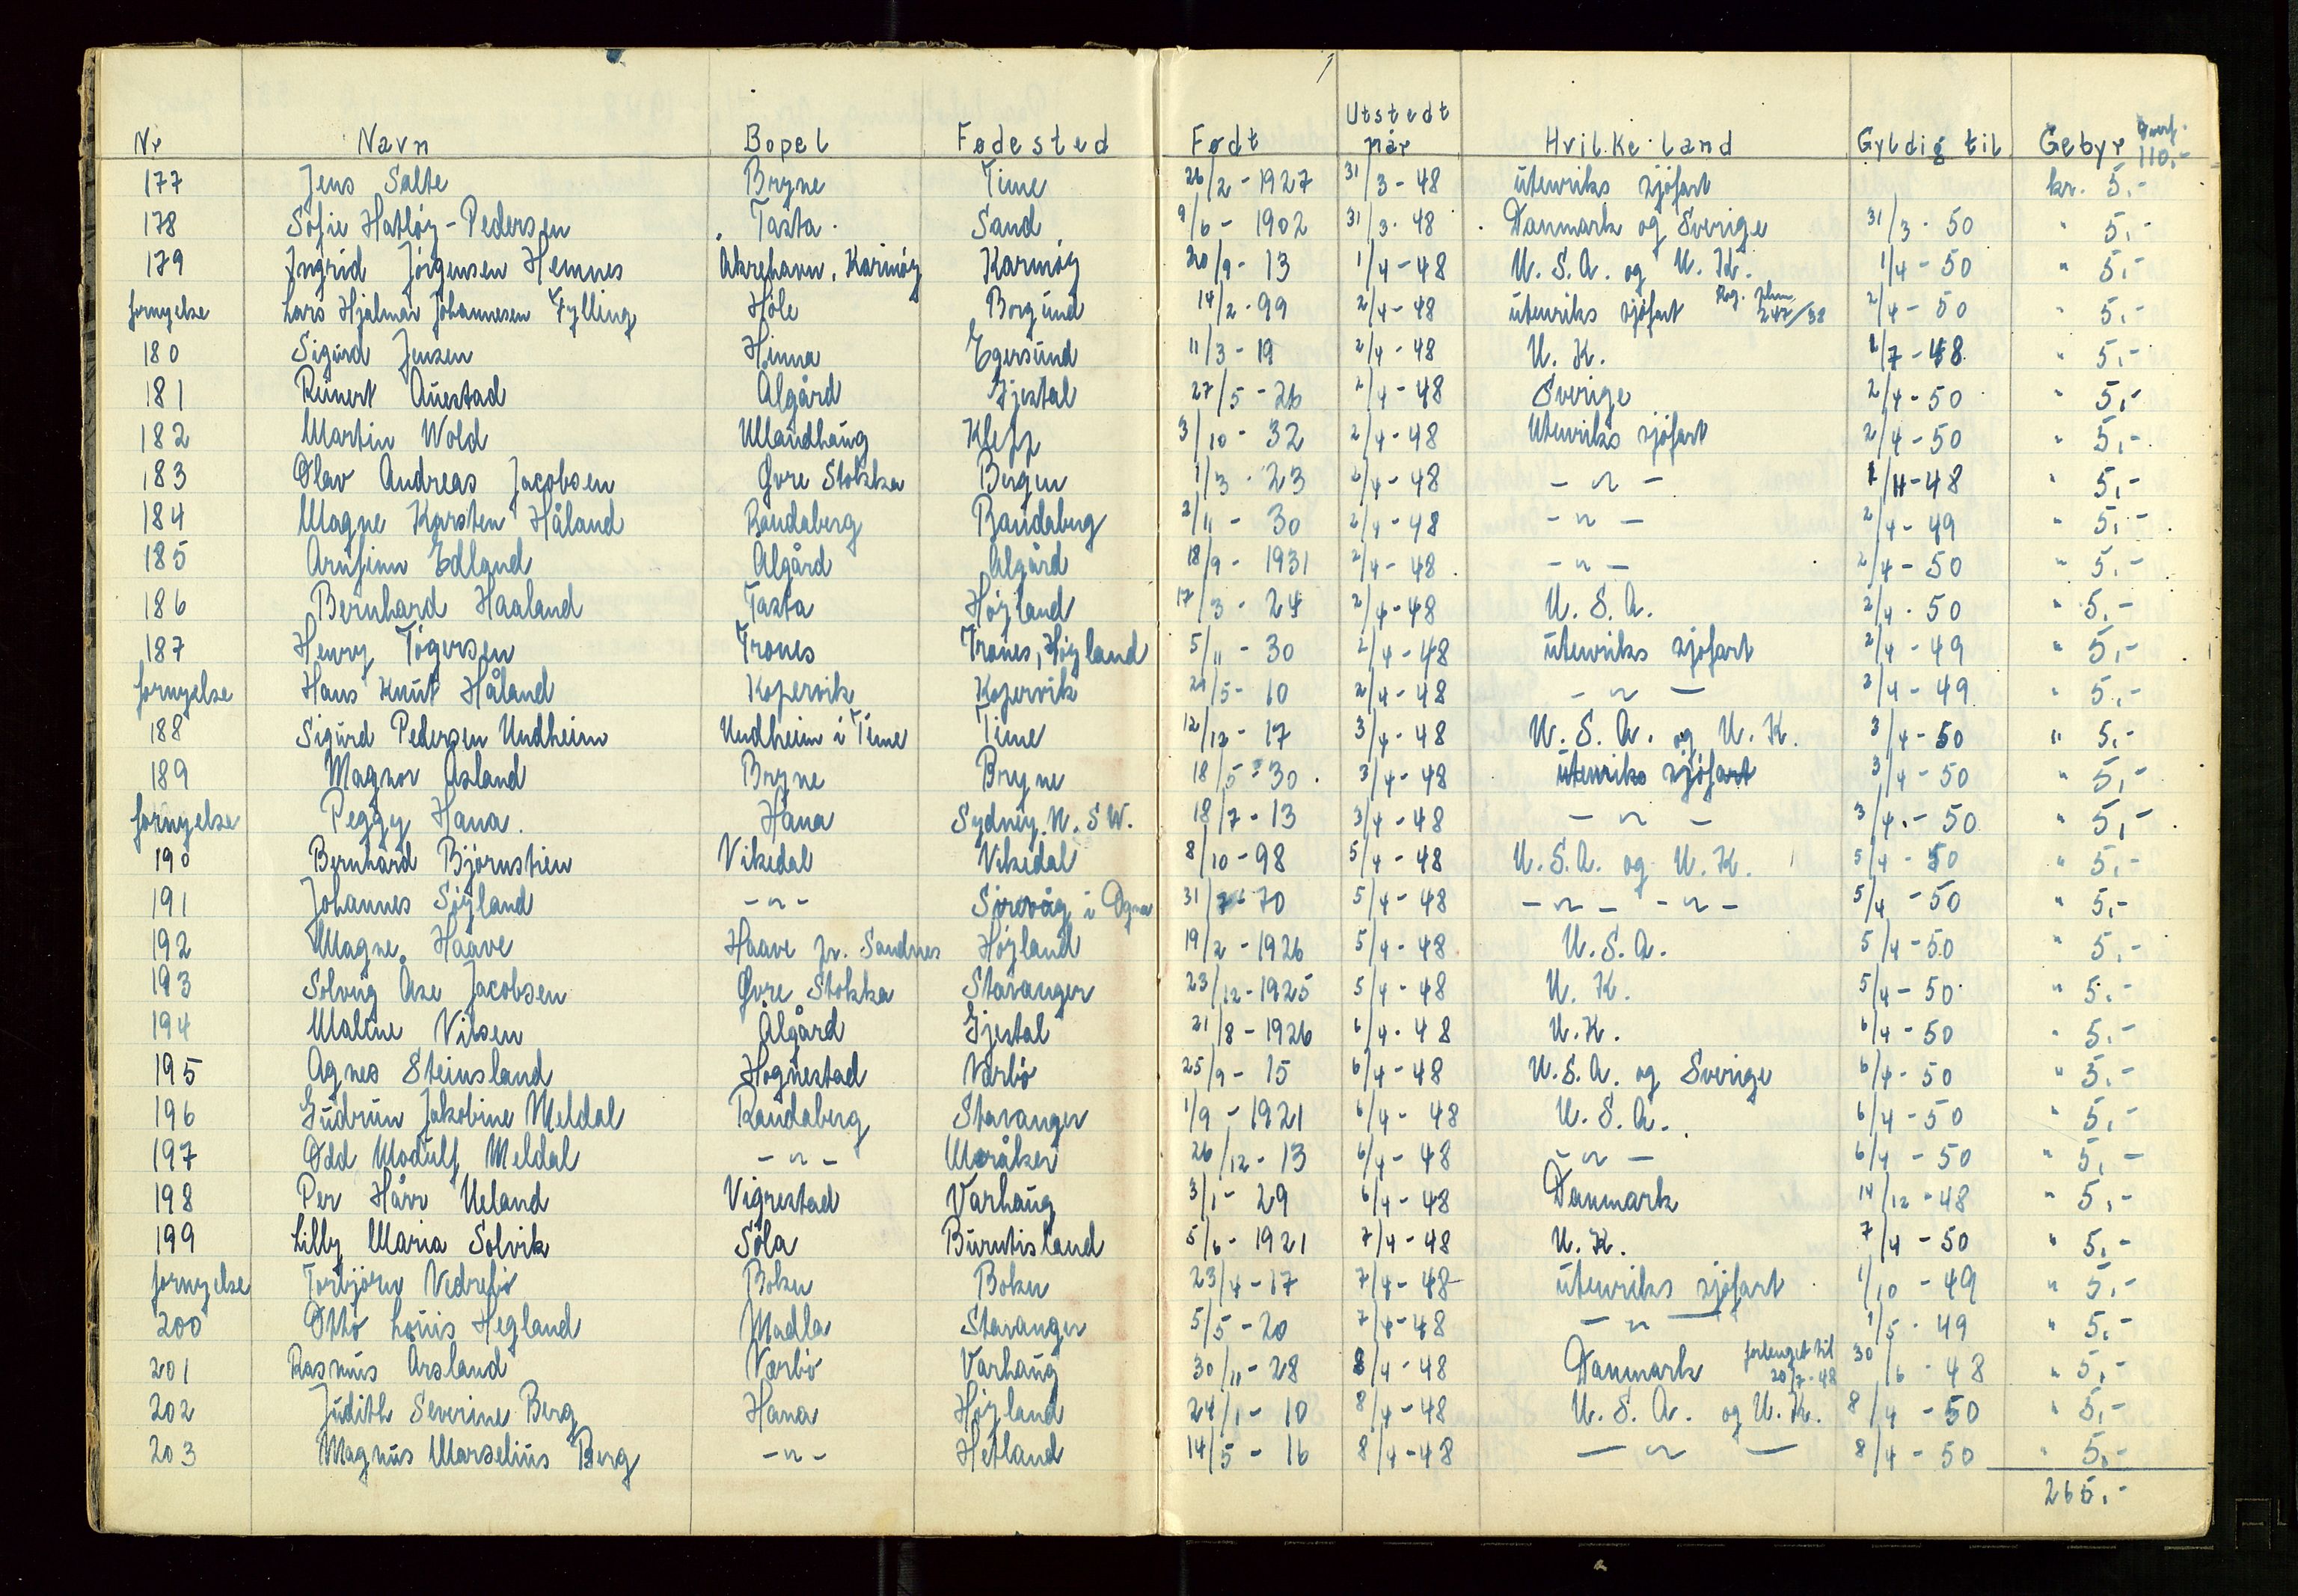 Nr Navn Bopel Fødested Født Utstedt når Hvilke land Gyldig til Gebyr Overf. 110,-
177 Jens Salte Bryne Time 26/2-1927 31/3-48 utenriks sjöfart kr. 5,-
178 Sofie Hatløy-Pedersen Tasta Sand 9/6-1902 31/3-48 Danmark og Sverige 31/3-50 " 5,-
179 Ingrid Jörgensen Hemnes Åkrehavn, Karmöy Karmöy 20/9-13 1/4-48 U.S.A. og U.K. 1/4-50 " 5,-
fornyelse Lars Hjalmar Johannesen Fylling Höle Borgund 14/2-99 2/4-48 utenriks sjöfart 247/38 2/4-50 " 5,-
180 Sigurd Jensen Hinna Egersund 11/3-19 2/4-48 U.K. 1/7-48 " 5,-
181 Reinert Auestad Ålgård Gjestal 27/5-26 2/4-48 Sverige 2/4-50 " 5,-
182 Martin Wold Ullandhaug Klepp 3/10-32 2/4-48 Utenriks sjöfart 2/4-50 " 5,-
183 Olav Andreas Jacobsen Øvre Stokka Bergen 1/3-23 2/4-48 -"- 1/11-48 " 5,-
184 Magne Karsten Håland Randaberg Randaberg 2/11-30 2/4-48 -"- 2/4-49 " 5,-
185 Arnfinn Edland Ålgård Ålgård 18/9-1931 2/4-48 -"- 2/4-50 " 5,-
186 Bernhard Haaland Tasta Höyland 17/3-24 2/4-48 U.S.A. 2/4-50 " 5,-
187 Henry Tögersen Trones Trones, Höyland 5/11-30 2/4-48 utenriks sjöfart 2/4-49 " 5,-
fornyelse Hans Knut Håland Kopervik Kopervik 29/5-10 2/4-48 -"- 2/4-49 " 5,-
188 Sigurd Pedersen Undheim Undheim i Time Time 12/12-17 3/4-48 U.S.A. og U.K. 3/4-50 " 5,-
189 Magnor Åsland Bryne Bryne 18/5-30 3/4-48 utenriks sjöfart 3/4-50 " 5,-
fornyelse Peggy Hana Hana Sydney. N.S.W. 18/7-13 3/4-48 -"- 3/4-50 " 5,-
190 Bernhard Björnstien Vikedal Vikedal 8/10-98 5/4-48 U.S.A. og U.K. 5/4-50 " 5,-
191 Johannes Söyland -"- Sirevåg i Ogna 31/7-70 5/4-48 -"- -"- 5/4-50 " 5,-
192 Magne Haave Haave pr. Sandnes Höyland 19/2-1926 5/4-48 U.S.A. 5/4-50 " 5,-
193 Solveig Åse Jacobsen Øvre Stokka Stavanger 23/12-1925 5/4-48 U.K. 5/4-50 " 5,-
194 Malene Nilsen Ålgård Gjestal 21/8-1926 6/4-48 U.K. 6/4-50 " 5,-
195 Agnes Steinsland Hognestad Nærbö 25/9-15 6/4-48 U.S.A. og Sverige 6/4-50 " 5,-
196 Gudrun Jakobine Meldal Randaberg Stavanger 1/9-1921 6/4-48 U.S.A. 6/4-50 " 5,-
197 Odd Modulf Meldal -"- Meråker 26/12-13 6/4-48 -"- 6/4-50 " 5,-
198 Per Hårr Ueland Vigrestad Varhaug 3/1-29 6/4-48 Danmark 14/12-48 " 5,-
199 Lilly Maria Solvik Sola Burntisland 5/6-1921 7/4-48 U.K. 7/4-50 " 5,-
fornyelse Torbjörn Vedrebö Bokn Bokn 23/4-17 7/4-48 utenriks sjöfart 1/10-49 " 5,-
200 Otto Louis Hegland Madla Stavanger 5/5-20 7/4-48 -"- 1/5-49 " 5,-
201 Rasmus Årsland Nærbö Varhaug 30/11-28 8/4-48 Danmark forlenget til 20/7-48 30/6-48 " 5,-
202 Judith Severine Berg Hana Höyland 24/1-10 8/4-48 U.S.A. og U.K. 8/4-50 " 5,-
203 Magnus Marselius Berg -"- Hetland 14/5-16 8/4-48 -"- 8/4-50 " 5,-
265,-